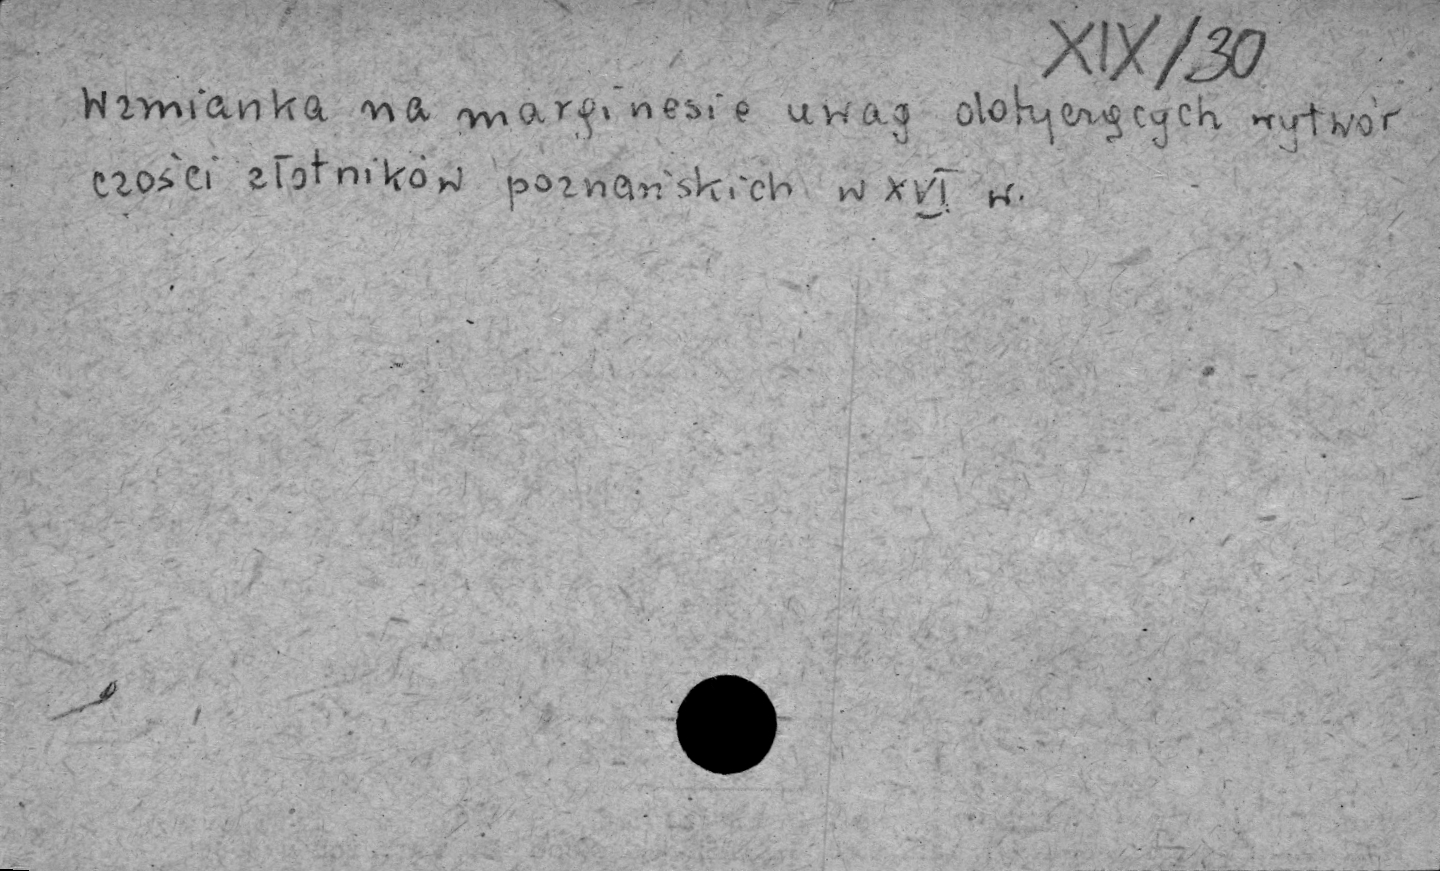 XIX/30
Wzmianka na marginesie uwag dotyczących wytwór
czości złotników poznańskich w XVI w.